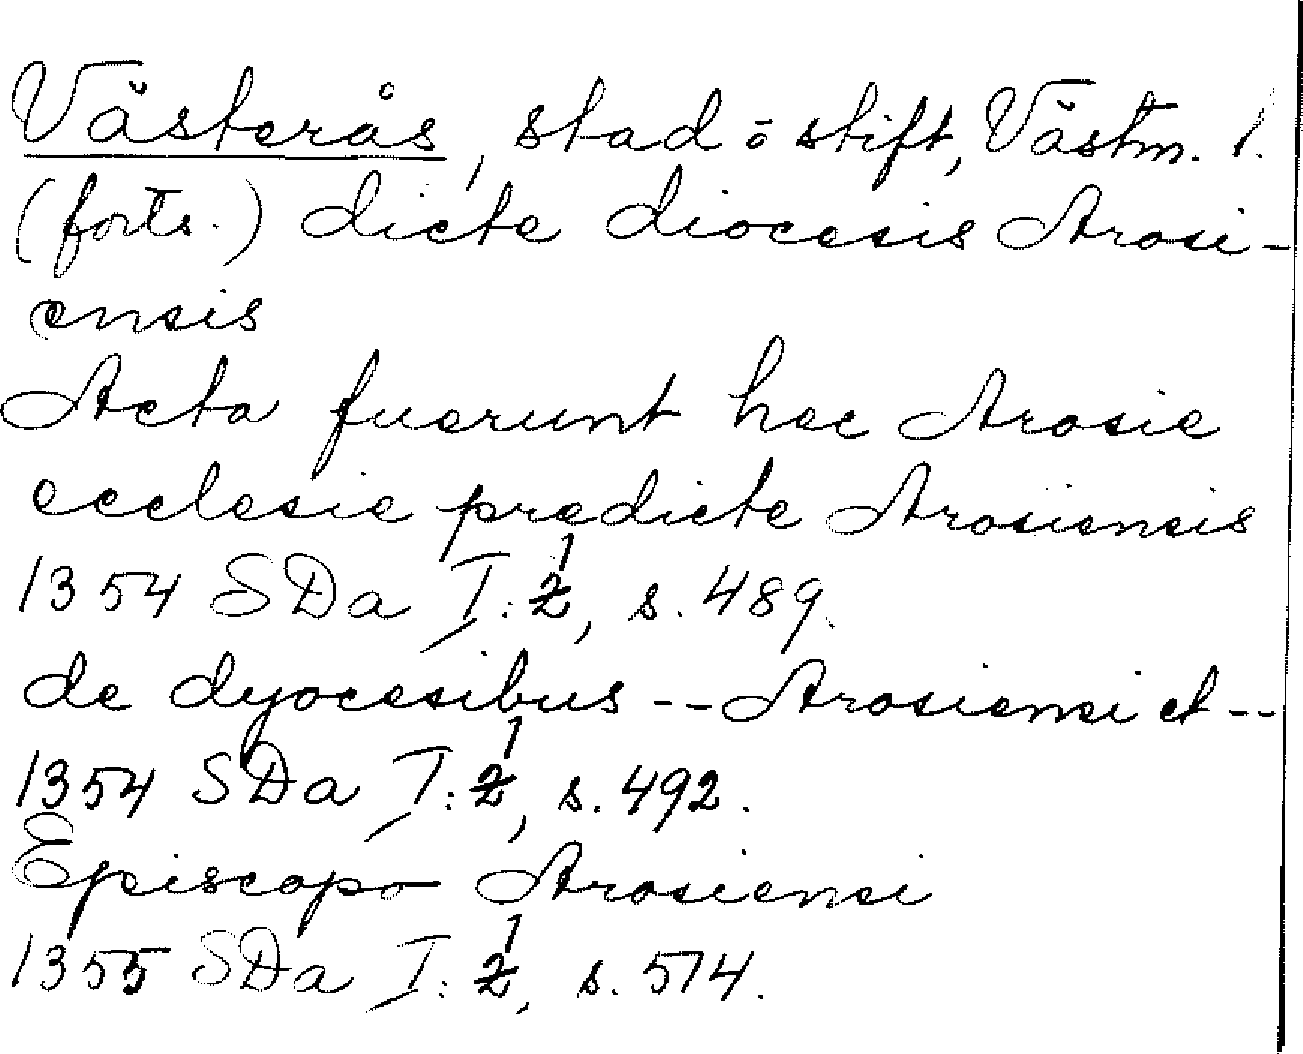 Västerås, stad o stift, Västm. l.
(forts.) dicte diocesis Arosi-
ensis
Acta fuerunt hec Arosie
ecclesie predicte Arosiensis
1354 SDa I:1, s. 489.
de dyocesibus -- Arosiensi et --
1354 SDa I:1, s. 492.
Episcopo Arosiensi
1355 SDa I:1, s. 574.